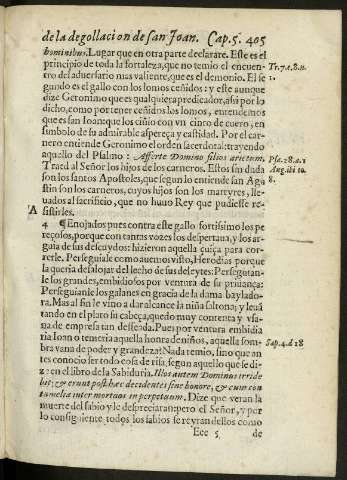 de la degollacion de san Joan. Cap. 5. 405
hominibus. Lugar que en otra parte declarare. Este es el
principio de toda la fortaleza, que no temio el encuen-
tro del aduersario mas valiente, que es el demonio. El se
gundo es el gallo con los lomos ceñidos: y este aunque
dize Geronimo que es qualquiera predicador, asi por lo
dicho, como por tener ceñidos los lomos, entendemos
que es san Ioan: que los ciñio con vn cinto de cuero, en
simbolo de su admirable aspereça y castidad. Por el car-
nero entiende Geronimo el orden sacerdotal: trayendo
aquello del Psalmo: Afferte Domino filios arietum.
Traed al Señor los hijos de los carneros. Estos sin duda
son los santos Apostoles, que segun lo entiende san Agu
stin son los carneros, cuyos hijos son los martyres, lle-
uados al sacrificio, que no huuo Rey que pudiesse re-
sistirles.
4 ¶ Enojados pues contra este gallo fortissimo los pe
reçosos, porque con tantas vozes los despertaua, y los ar-
guia de sus descuydos: hizieron aquella
rerle. Perseguiale como auemos visto, Herodias porque
la queria desalojar del lecho de sus deleytes: Perseguian-
le los grandes, embidiosos por ventura de su priuança:
Perseguianle los galanes en gracia de la dama baylado-
ra. Mas al fin le vino a dar alcance la niña saltona; y leuã
tando en el plato su cabeça, quedo muy contenta y vfa-
na de empresa tan desseada. Pues por ventura embidia
ria Ioan o temeria aquella honra de niños, aquella som-
bra vana de poder y grandeza? Nada temio, sino que an
tes conocio ser todo cosa de risa, segun aquello que se di-
ze: en el libro de la Sabiduria. Illos autem Dominus irride
bit; & erunt post hæc decidentes sine honore, & cum con
tumelia inter mortuos in perpetuum. Dize que veran la
muerte del sabio y le despreciaran: pero el Señor, y por
lo consiguiente todos los sabios se reyran dellos como
Eee 5 de
Tr. 7. c. 8. n.
1.
Psa. 28. a. 1
Aug. ibi to.
8.
Sap. 4. d 18
A